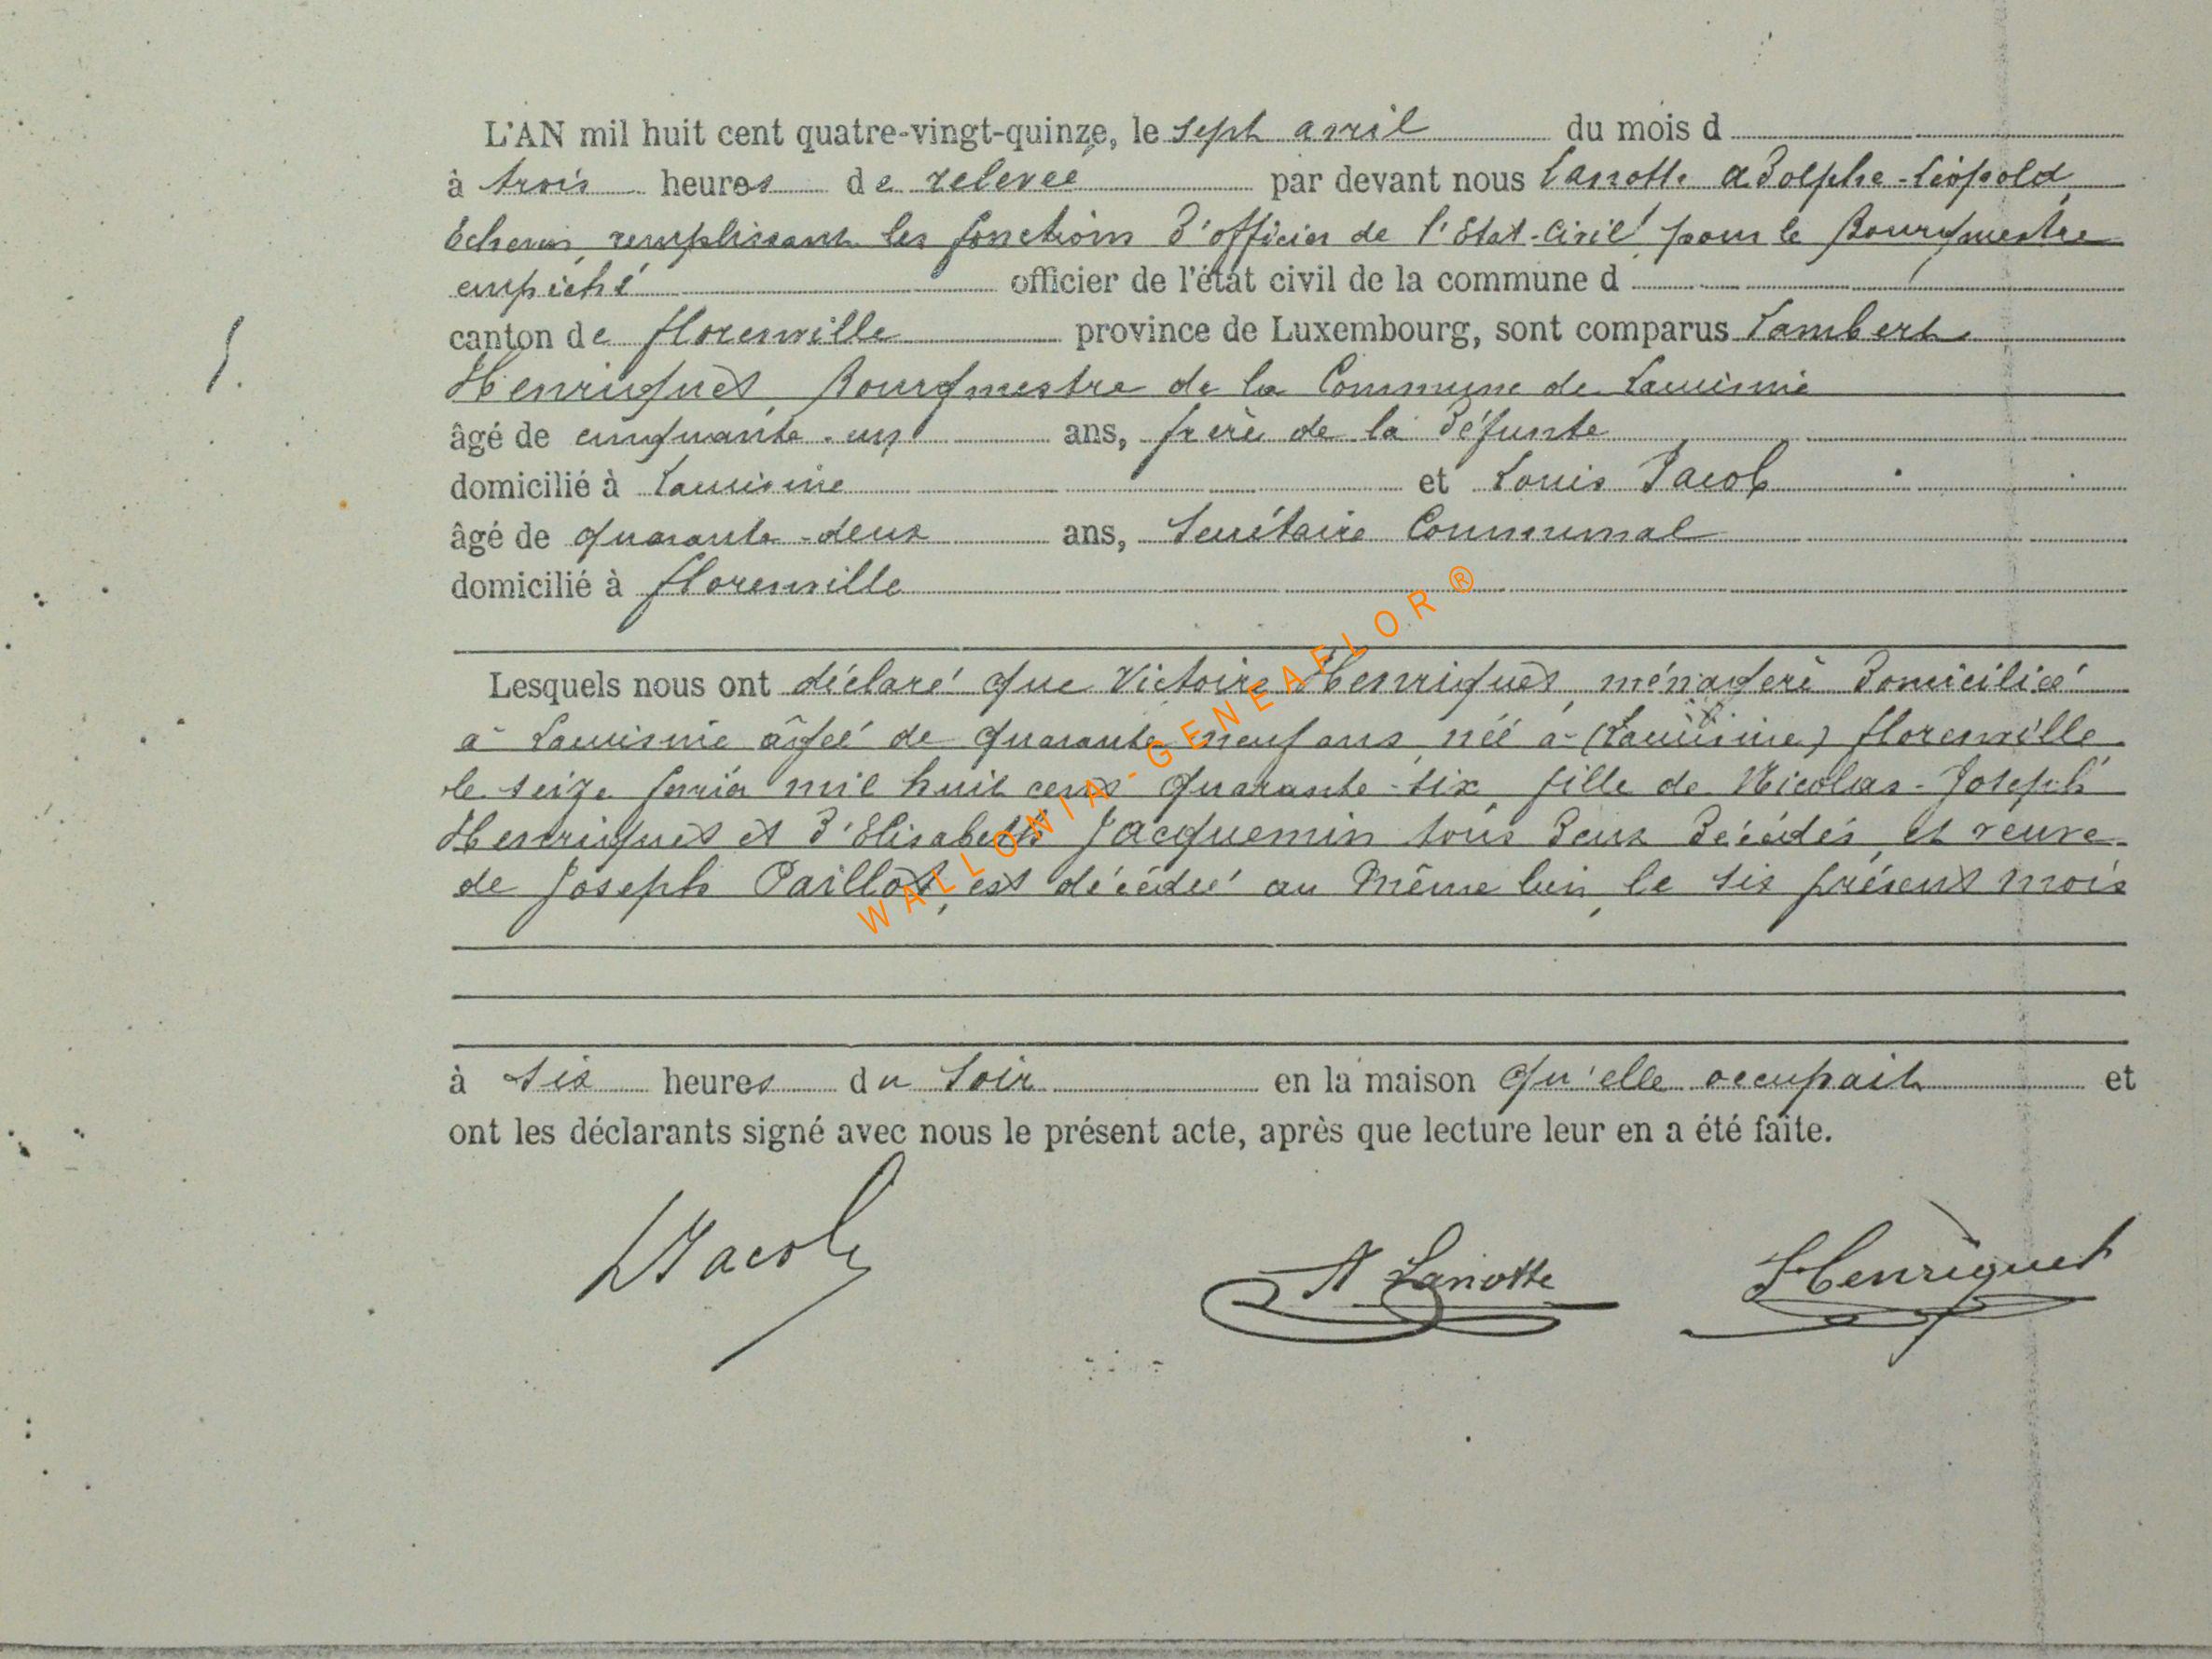 L'AN mil huit cent quatre-vingt-quinze, le sept avril du mois d
à trois heures de relevée par devant nous Lanotte Adolphe-Léopold,
Echevin, remplissant les fonctions d'officier de l'Etat-Civil pour le Bourgmestre
empêché officier de l'état civil de la commune d
canton de florenville province de Luxembourg, sont comparus Lambert
Henriquet, Bourgmestre de la Commune de Lacuisine
âgé de cinquante-un ans, frère de la défunte
domicilié à Lacuisine et Louis Jacob
âgé de quarante-deux ans, Secrétaire Communal
domicilié à florenville
1.
Lesquels nous ont déclaré que Victoire Henriquet, ménagère domiciliée
à Lacuisine âgée de quarante neuf ans, née à (Lacuisine) florenville
le seize février mil huit cent quarante-six, fille de Nicolas-Joseph
Henriquet et d'Elisabeth Jacquemin tous deux décédés, et veuve
de Joseph Paillot, est décédée au même lieu, le six présent mois
à six heures du soir en la maison qu'elle occupait et
ont les déclarants signé avec nous le présent acte, après que lecture leur en a été faite.
LJacob A Lanotte Henriquet
WALLONIA-GENEAFLOR®